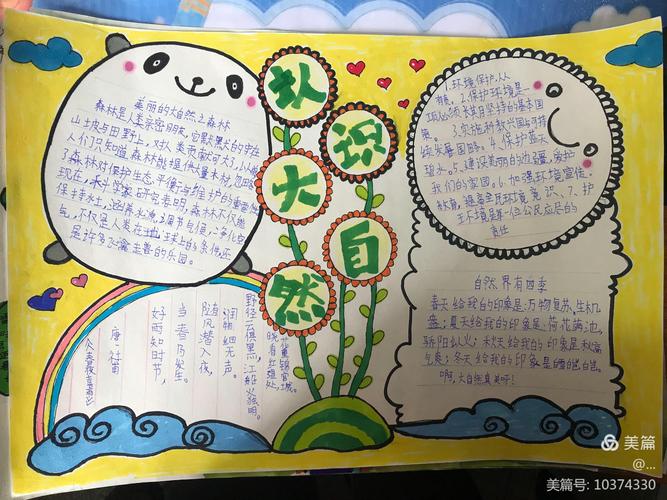 认识大自然
美丽的大自然之森林
森林是人类亲密朋友,它默默大的守在
山坡与田野上,对人类贡献可大了!以前
人们只知道森林能提供大量木材,忽略
了森林对保护生态平衡与维护的重要作
现在,科学家研究表明,森林不不仅能
保持水土,涵养水源,调节气候,净化空
气,不仅是人类在地球上的条件,还
是许多飞禽走兽的乐园。
1.环境保护,从
我
2.保护环境是
项必须长期坚持的基本国
策。3.实施科教兴国与可持
续发展国略。4.保护蓝天
碧水。5.建设美丽的边疆,爱护
我们的家园。6.加强环境宣传
教育,提高全民环境意识、7.护
环境是每一位公民应尽的
责任
自然界有四季
春天给我的印象是:万物复苏,生机
盎;夏天给我的印象是:荷花满池,
骄阳似火;秋天给我的印象是秋高
气爽;冬天给我的印象是皑皑。
啊,大自然真美呀!
春夜喜雨
唐·杜甫
好雨知时节,
当春乃发生。
随风潜入夜,
润物细无声。
野径云俱黑,江船火独明。
晓看红湿处,
花重锦官城。
美篇
@...
美篇号: 10374330